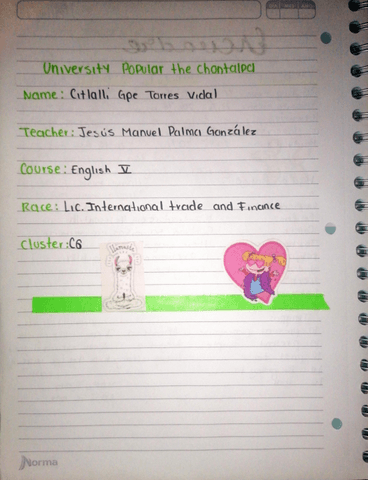 University Popular the Chontalpa
Name: Citlalli Gpe Torres Vidal
Teacher: Jesús Manuel Palma González
Course: English V
Race: Lic. International trade and Finance
Cluster: C8
Namaste
Norma